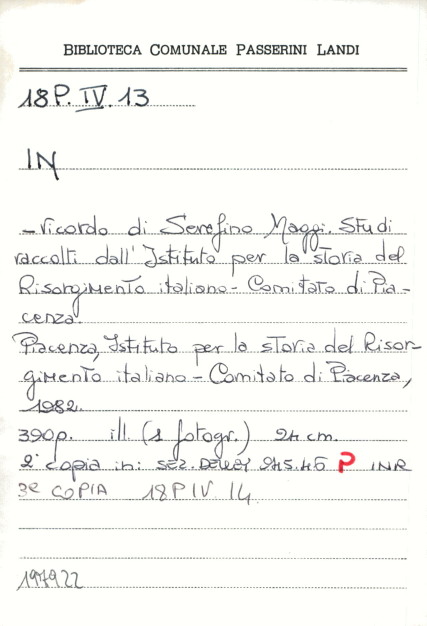 BIBLIOTECA COMUNALE PASSERINI LANDI
18P. IV. 13
IN
- ricordo di Serafino Maggi. Studi
raccolti dall'Istituto per la storia del
Risorgimento italiano - Comitato di Pia-
cenza.
Piacenza, Istituto per la storia del Risor-
gimento italiano - Comitato di Piacenza,
1982.
390p. ill. (1 fotogr.) 24 cm.
2ª copia in: sez. 945.45 P INR
3ª COPIA 18 P IV 14
197922